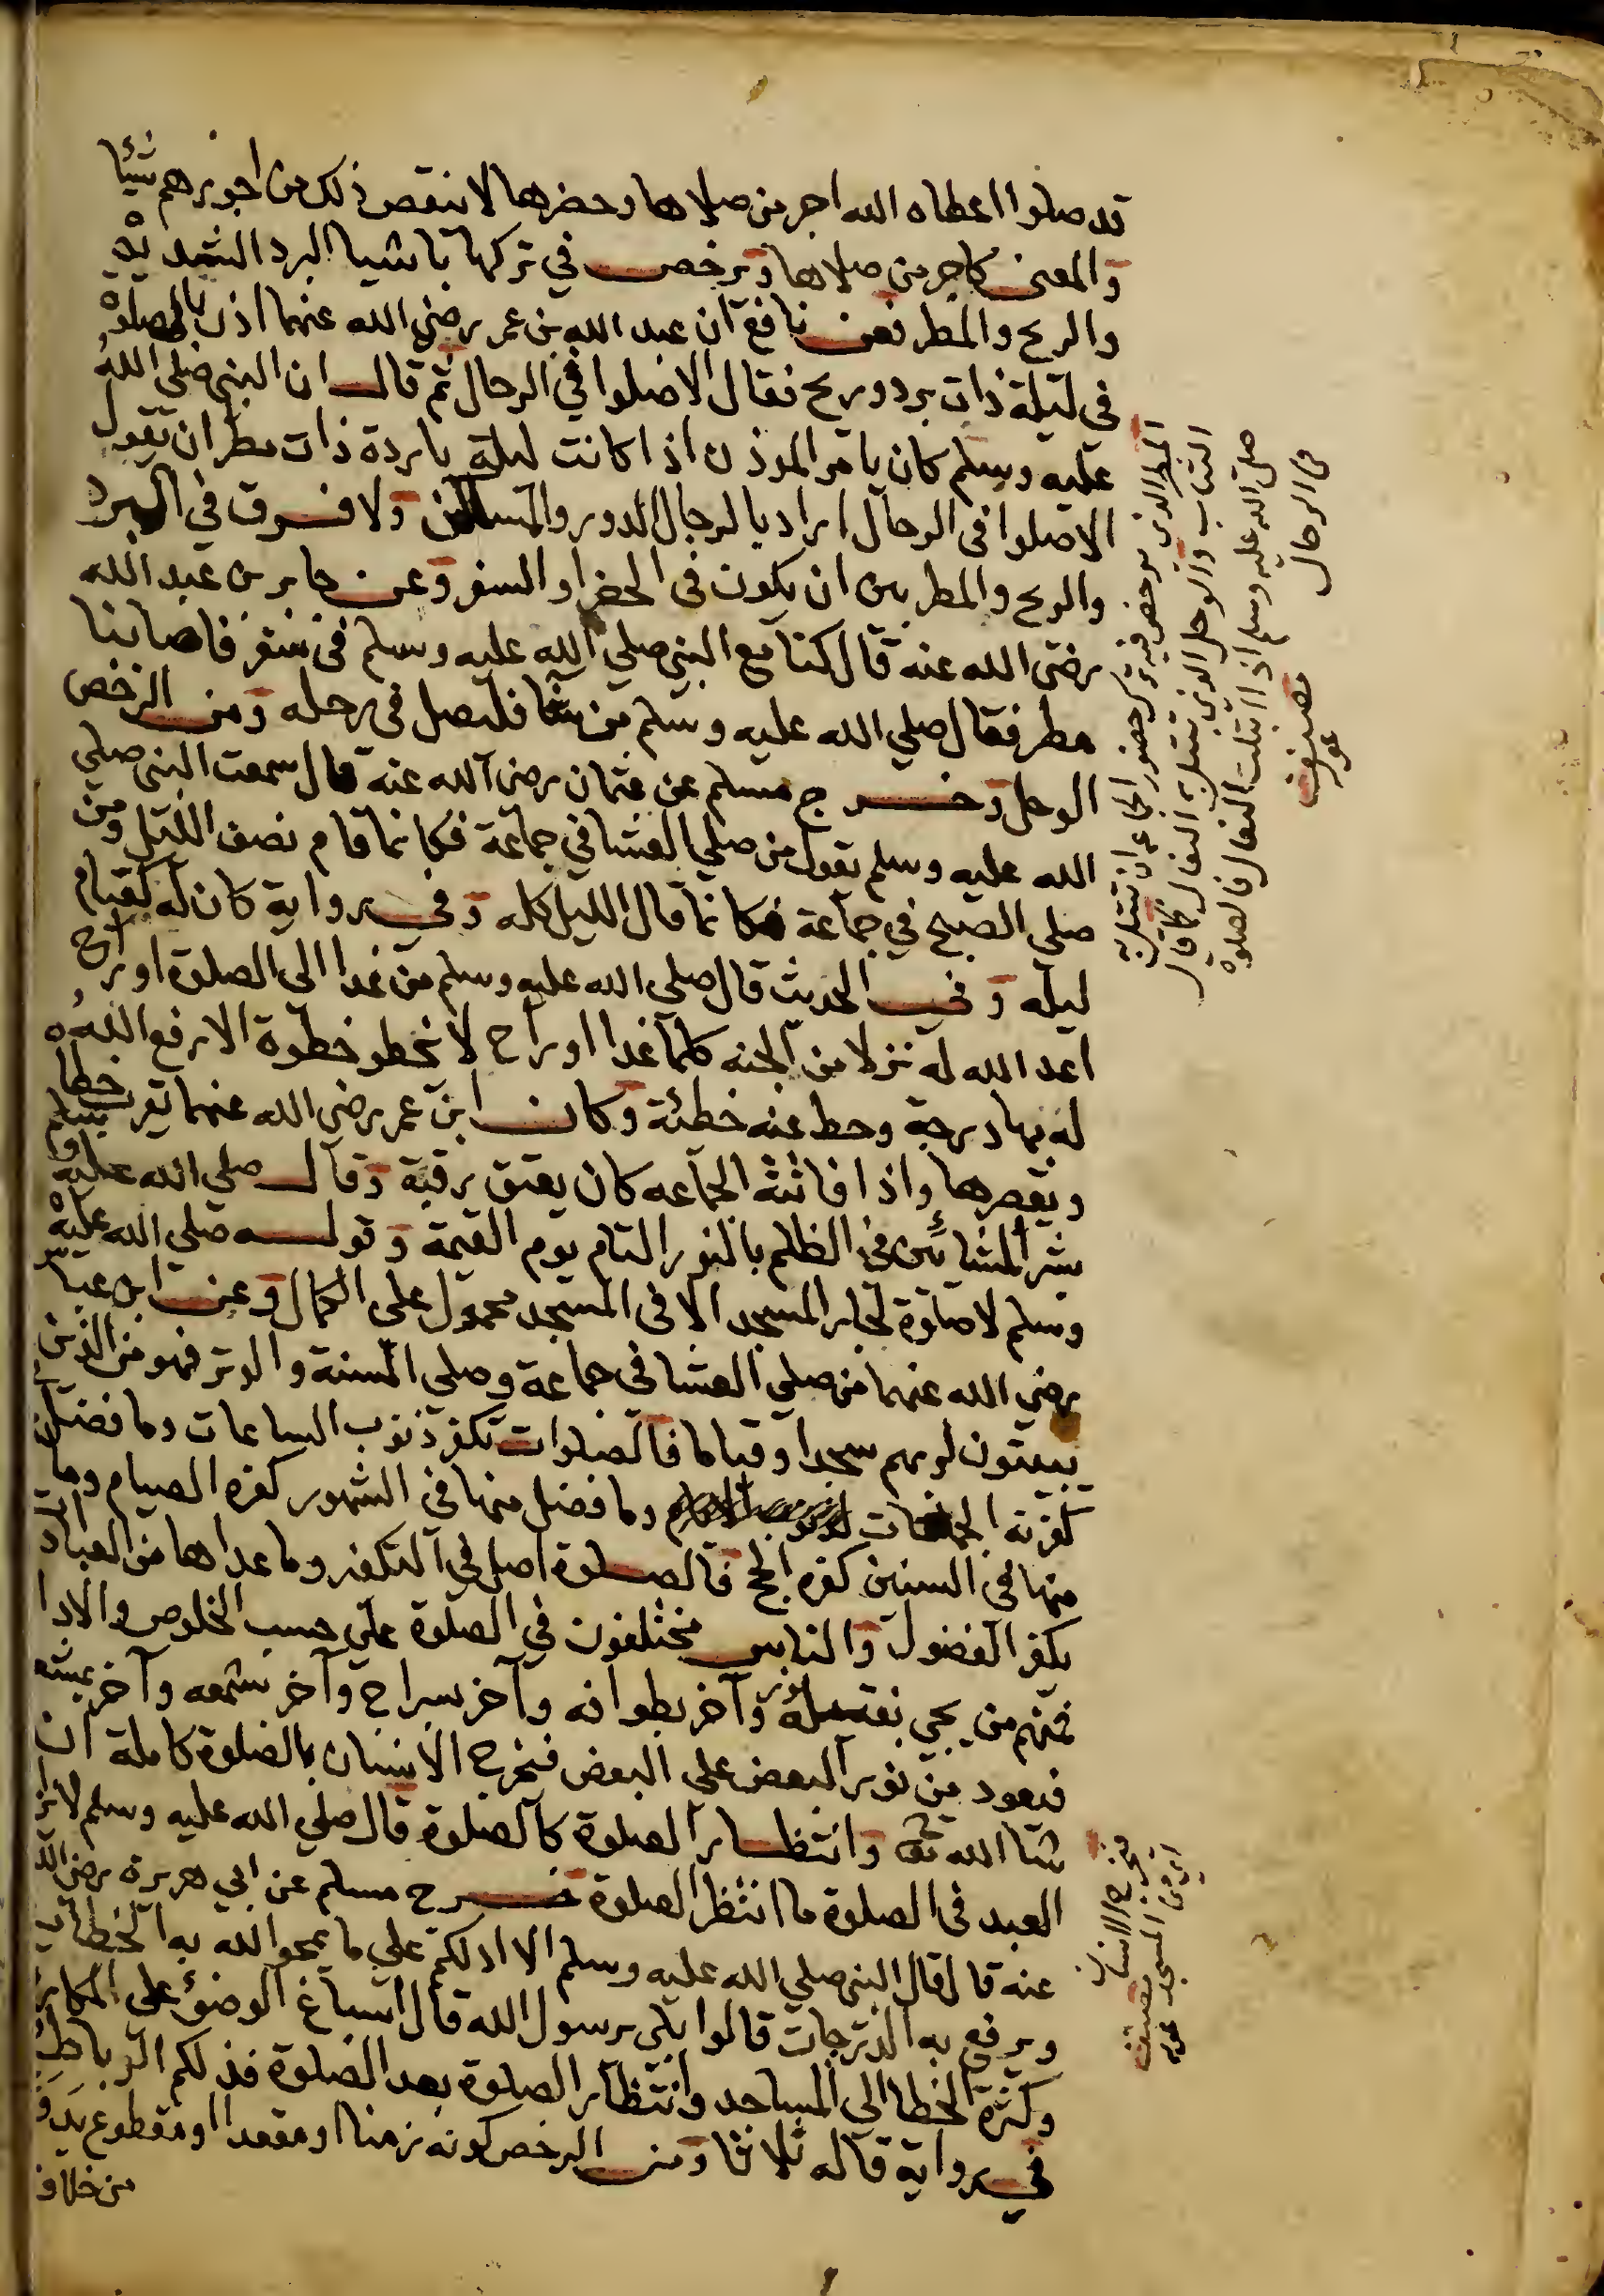 قد صلوا اعطاه الله اجر من صلاها وحضرها لا ينقص ذلك من اجورهم شيئا
والمعنى كاجر من صلاها ويرخص في تركها باشيا البرد الشديد
والريح والمطر فعن نافع ان عبد الله بن عمر رضي الله عنهما اذن بالصلوة
في ليلة ذات برد وريح فقال الا صلوا في الرحال ثم قال ان النبي صلي الله
عليه وسلم كان يامر الموذن اذا كانت ليلة باردة ذات مطر ان يقول
الا صلوا في الرحال اراد بالرحال الدور والمساكن ولا فرق في البرد
والريح والمطر بين ان يكون في الحضر او السفر وعن جابر بن عبد الله
رضي الله عنه قال كنا مع النبي صلي الله عليه وسلم في سفر فاصابنا
مطر فقال صلي الله عليه وسلم من شا فليصل في رحله ومن الرخص
الوحل وخرج مسلم عن عثمان رضي الله عنه قال سمعت النبي صلي
الله عليه وسلم يقول من صلي العشا في جماعة فكانما قام نصف الليل ومن
صلي الصبح في جماعة فكانما قال الليل كله وفي رواية كان له كقيام
ليله وفي الحديث قال صلي الله عليه وسلم من غدا الى الصلوة او راح
اعد الله له نزلا من الجنه كلما غدا او راح لا يخطو خطوة الا رفع الله
له بها درجة وحط عنه خطئة وكان ابن عمر رضي الله عنهما خطاه
ويقصرها واذا فاتته الجماعه كان يعتق رقبة وقال صلي الله عليه وسلم
بشر المشائين في الظلم بالنور التام يوم القيمة وقوله صلي الله عليه
وسلم لا صلوة لجار المسجد الا في المسجد محمول على الكمال وعن ابن عباس
رضي الله عنهما من صلي العشا في جماعة وصلي السنة والوتر فهو من الذين
يبيتون لربهم سجدا وقياما فالصلوات تكفر ذنوب الساعات وما فضل
كفرته الجمعات وما فضل منها في الشهور كفره الصيام وما
منها في السنين كفره الحج فالصلوة اصل في التكفير وما عداها من العبادات
يكفر الفضول والناس مختلفون في الصلوة علي حسب الخلوص والادا
فمنهم من يجي وآخر بطوافه وآخر بسراج وآخر بشمعه وآخر
فيعود من نور البعض علي البعض فيخرج الانسان بالصلوة كاملة ان
شا الله تع وانتظار الصلوة كالصلوة قال صلي الله عليه وسلم لا يزال
العبد في الصلوة ما انتظر الصلوة خرج مسلم عن ابي هريرة رضي الله
عنه قال قال النبي صلي الله عليه وسلم الا ادلكم علي ما يمحو الله به الخطايا
ويرفع به الدرجات قالوا بلي يرسول الله قال اسباغ الوضوء على المكاره
وكثرة الخطا الي المساجد وانتظار الصلوة بعد الصلوة فذلكم الرباط
في رواية قاله ثلاثا ومن الرخص كونه زمنا او مقعدا او مقطوع يد و
من خلاف
المطر الذي يرخص فيه ترك حضور الجماعة ان تبتل به
الثياب والوحل الذي تبتل به النعال كما قال
صلي الله عليه وسلم اذا ابتلت النعال فالصلوة
في الرحال